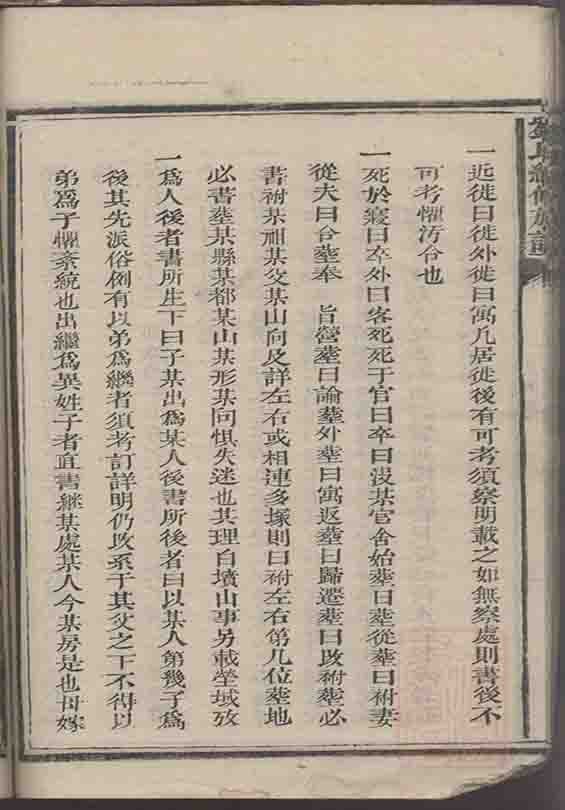 一近徙曰徙外徙曰寓凡居徙後有可考須察明載之如無察處則書後不
可考懼汚合也
一死於寢曰卒外曰客死死于官曰卒曰沒某官舍始葬曰葬從葬曰祔妻
從夫曰合葬奉 旨營葬曰諭葬外葬曰寓返葬曰歸遷葬曰改祔葬必
書祔某祖某父某山向及詳左右或相連多塚則曰祔左右第几位葬地
必書葬某縣某都某山某形某向惧失迷也其理自墳山事另載塋域攷
一爲人後者書所生下曰子某出爲某人後書所後者曰以某人第幾子爲
後其先派俗例有以弟爲繼者須考訂詳明仍改系于其父之下不得以
弟爲子懼紊統也出繼爲異姓子者直書継某處某人今某房是也母嫁